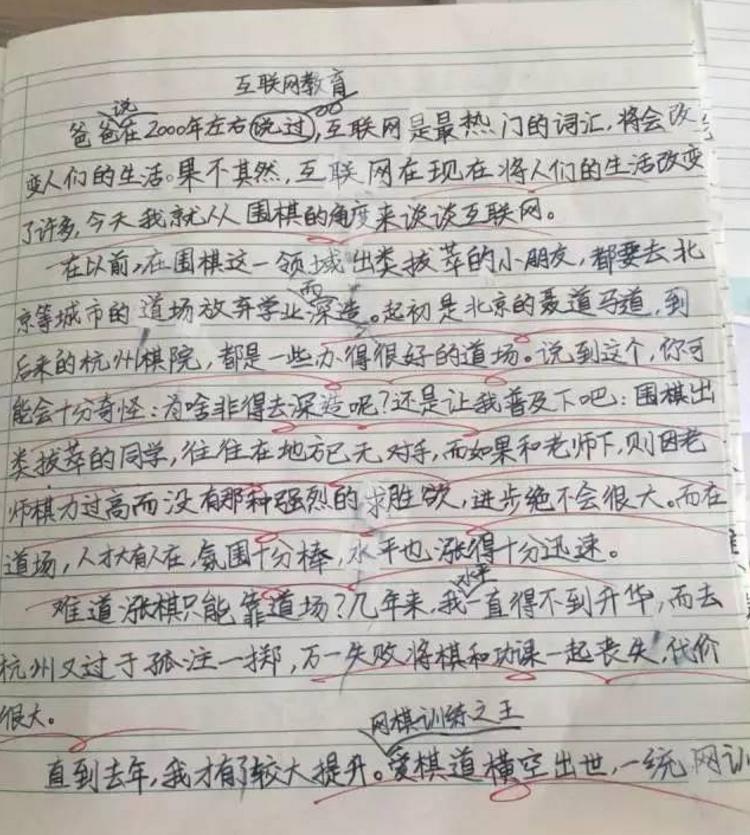 互联网教育
说
爸爸在2000年左右说过,互联网是最热门的词汇,将会改
变人们的生活。果不其然,互联网在现在将人们的生活改变
了许多,今天我就从围棋的角度来谈谈互联网。
在以前,在围棋这一领域出类拔萃的小朋友,都要去北
而
京等城市的道场放弃学业深造。起初是北京的聂道马道,到
后来的杭州棋院,都是一些办得很好的道场。说到这个,你可
能会十分奇怪:为啥非得去深造呢?还是让我普及下吧:围棋出
类拔萃的同学,往往在地方已无对手,而如果和老师下,则因老
师棋力过高而没有那种强烈的求胜欲,进步绝不会很大。而在
道场,人才大有人在,氛围十分棒,水平也涨得十分迅速。
水平
难道涨棋只能靠道场?几年来,我一直得不到升华,而去
杭州又过于孤注一掷,万一失败将棋和功课一起丧失,代价
很大。
网棋训练之王
直到去年,我才有了较大提升。爱棋道横空出世,一统网训